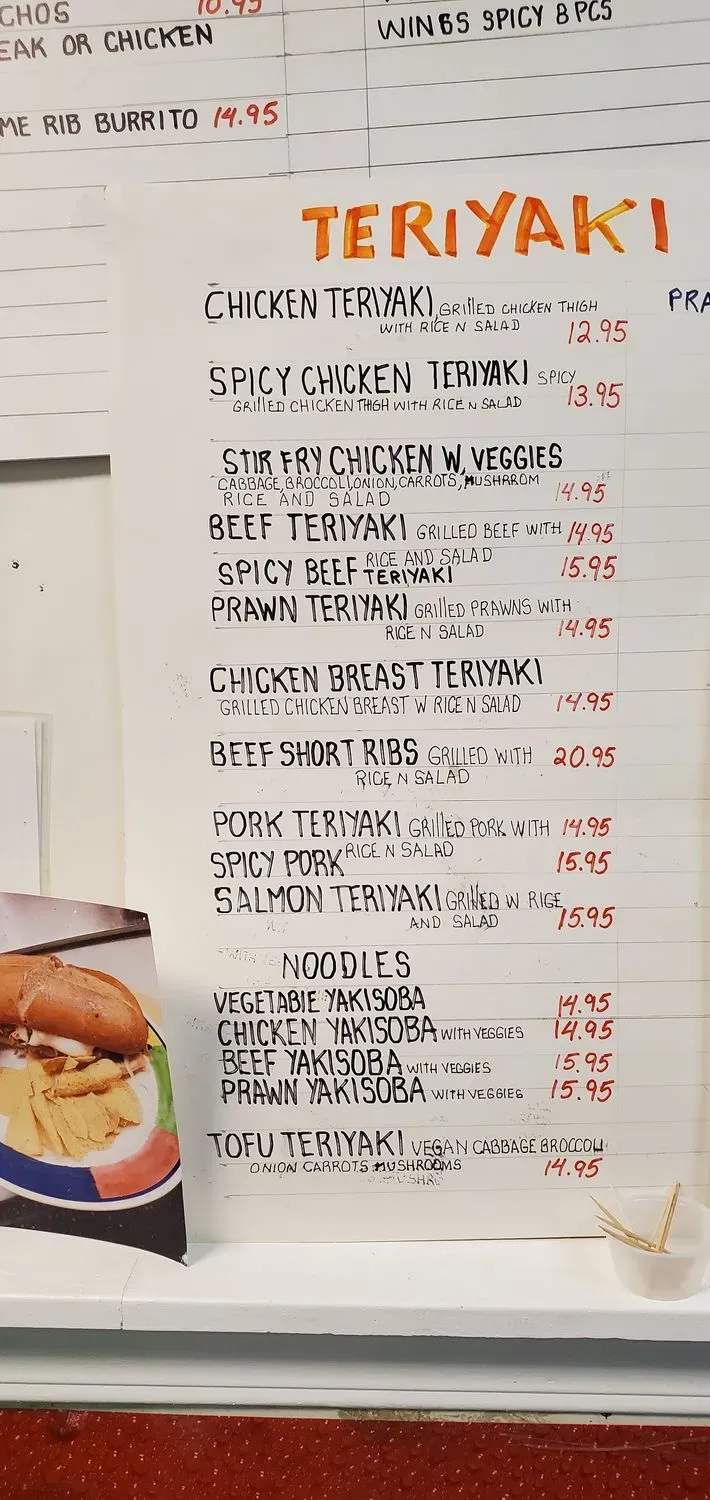 CHOS 10.95
EAK OR CHICKEN
WINGS SPICY 8 PCS
ME RIB BURRITO 14.95
TERIYAKI
CHICKEN TERIYAKI, GRILLED CHICKEN THIGH
WITH RICE N SALAD 12.95
PRA
SPICY CHICKEN TERIYAKI SPICY
GRILLED CHICKEN THIGH WITH RICE N SALAD 13.95
STIR FRY CHICKEN W, VEGGIES
CABBAGE, BROCCOLI, ONION, CARROTS, MUSHRROM
RICE AND SALAD 14.95
BEEF TERIYAKI GRILLED BEEF WITH 14.95
RICE AND SALAD
SPICY BEEF TERIYAKI 15.95
PRAWN TERIYAKI GRILLED PRAWNS WITH
RICE N SALAD 14.95
CHICKEN BREAST TERIYAKI
GRILLED CHICKEN BREAST W RICE N SALAD 14.95
BEEF SHORT RIBS GRILLED WITH 20.95
RICE N SALAD
PORK TERIYAKI GRILLED PORK WITH 14.95
RICE N SALAD
SPICY PORK 15.95
SALMON TERIYAKI GRILLED W RIGE
AND SALAD 15.95
NOODLES
VEGETABIE YAKISOBA 14.95
CHICKEN YAKISOBA WITH VEGGIES 14.95
BEEF YAKISOBA WITH VEGGIES 15.95
PRAWN YAKISOBA WITH VEGGIES 15.95
TOFU TERIYAKI VEGAN CABBAGE BROCCOLI
ONION CARROTS MUSHROOMS 14.95